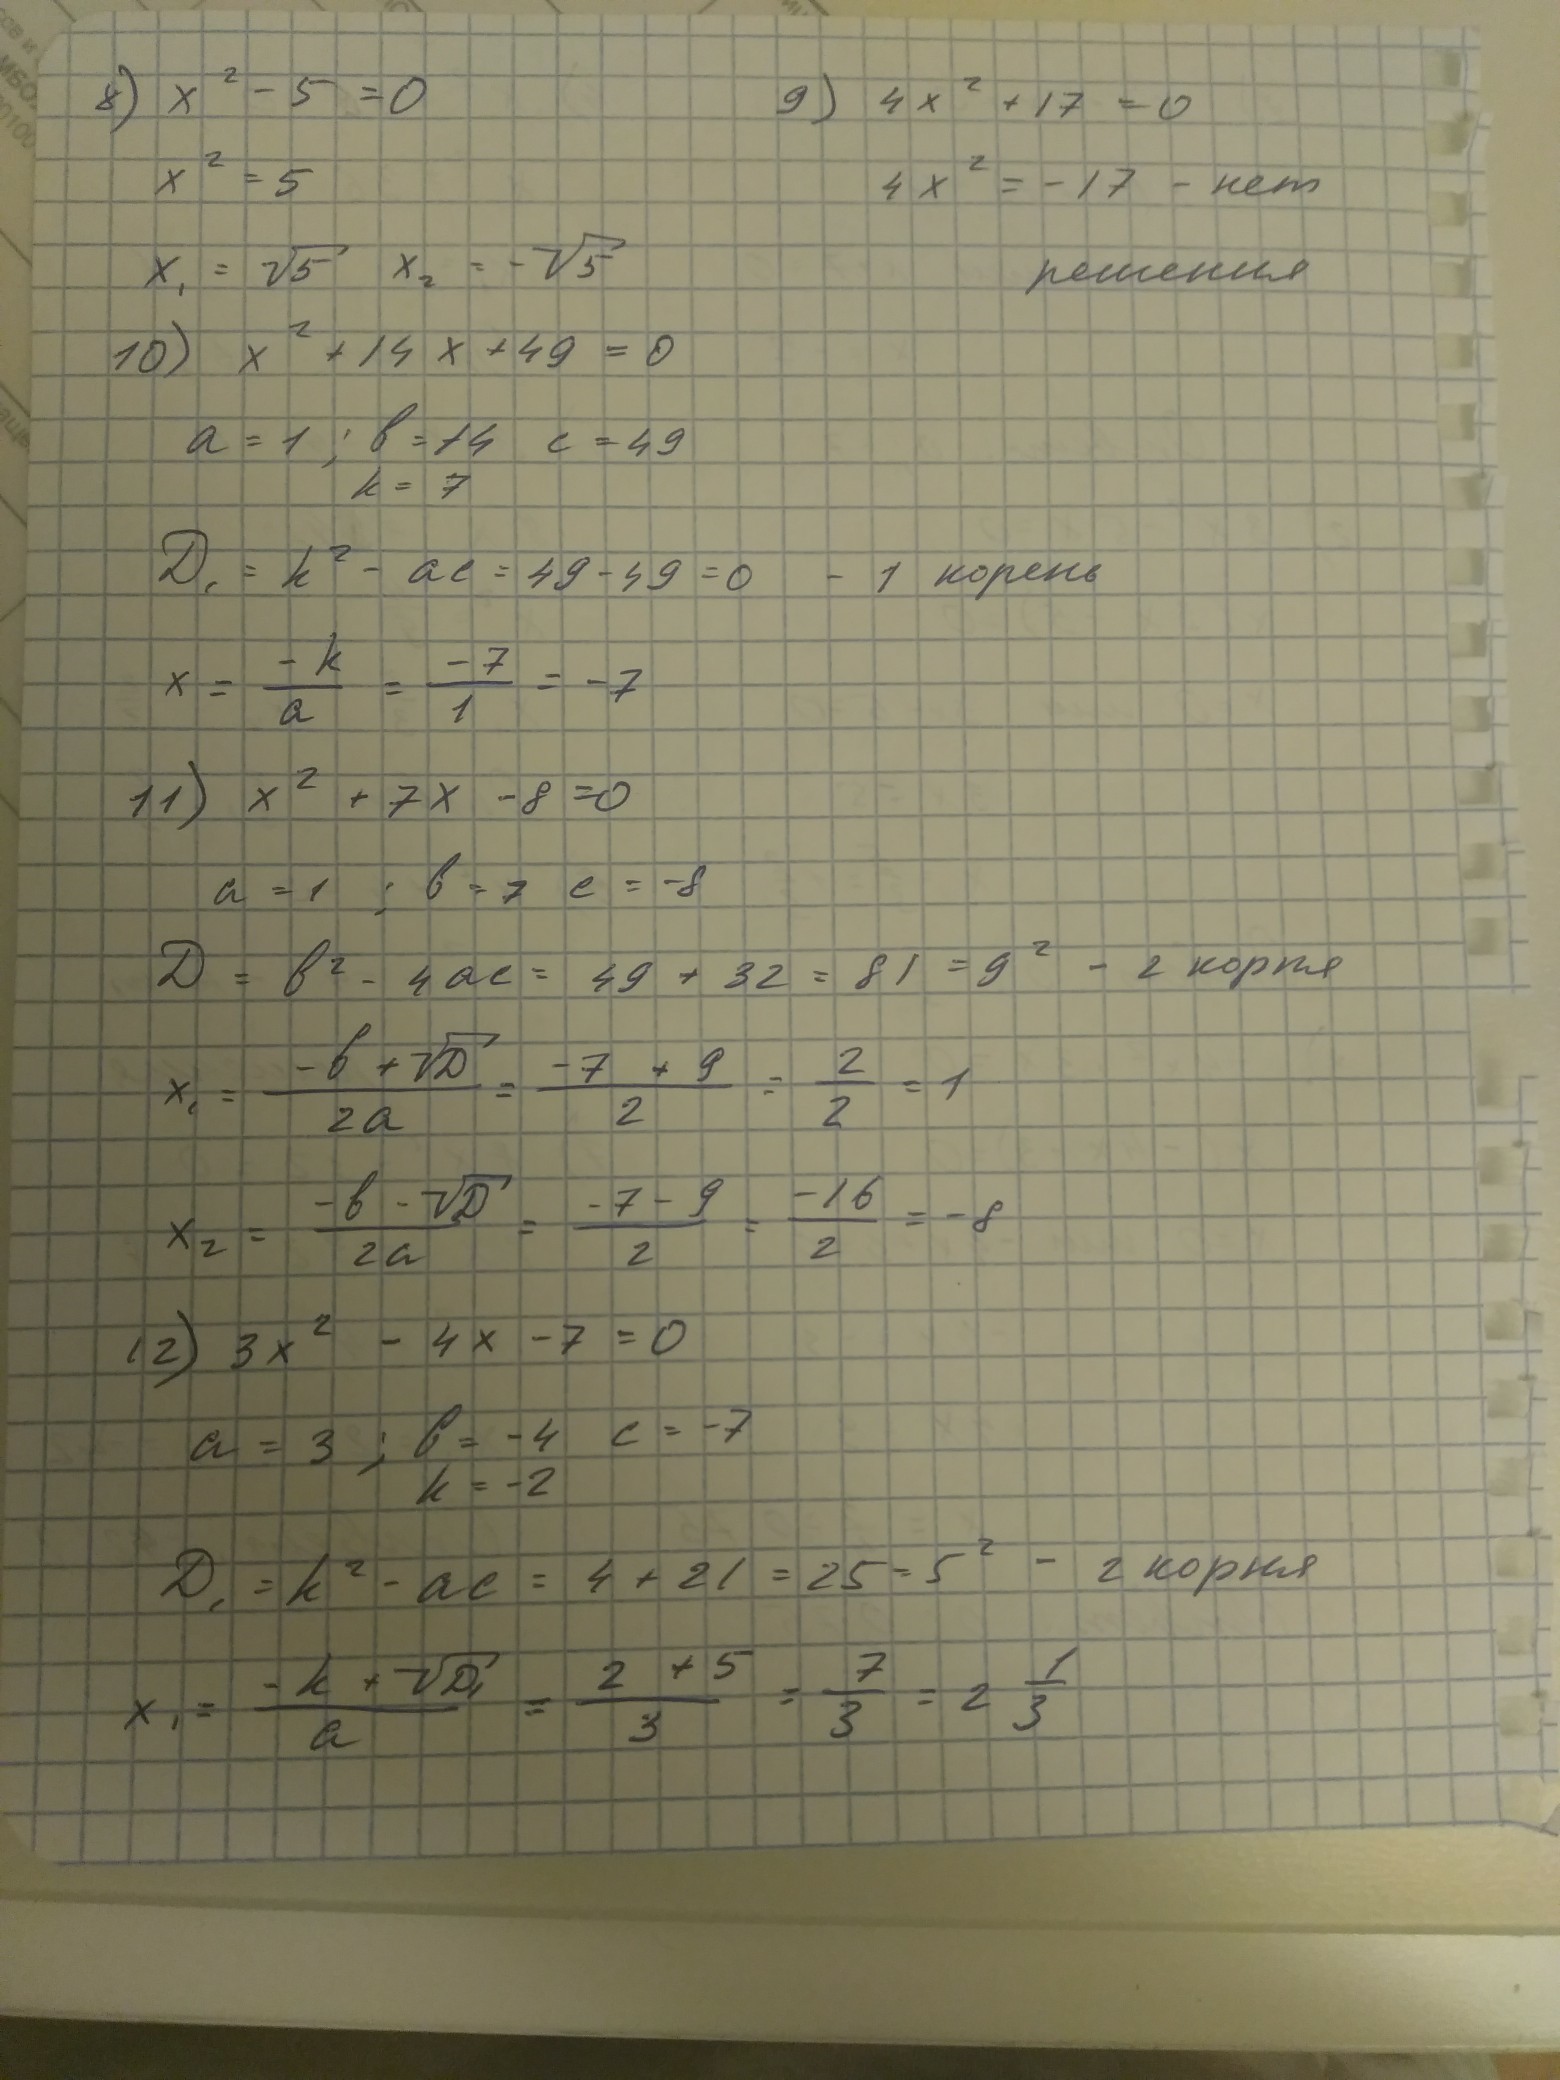 8) x² - 5 = 0
9) 4x² + 17 = 0
x² = 5
4x² = -17 - нет
x₁ = √5 x₂ = -√5
решения
10) x² + 14x + 49 = 0
a = 1 ; b = 14 c = 49
k = 7
D₁ = k² - ac = 49 - 49 = 0 - 1 корень
x = -k/a = -7/1 = -7
11) x² + 7x - 8 = 0
a = 1 ; b = 7 c = -8
D = b² - 4ac = 49 + 32 = 81 = 9² - 2 корня
x₁ = (-b + √D)/2a = (-7 + 9)/2 = 2/2 = 1
x₂ = (-b - √D)/2a = (-7 - 9)/2 = -16/2 = -8
12) 3x² - 4x - 7 = 0
a = 3 ; b = -4 c = -7
k = -2
D₁ = k² - ac = 4 + 21 = 25 = 5² - 2 корня
x₁ = (-k + √D₁)/a = (2 + 5)/3 = 7/3 = 2 1/3